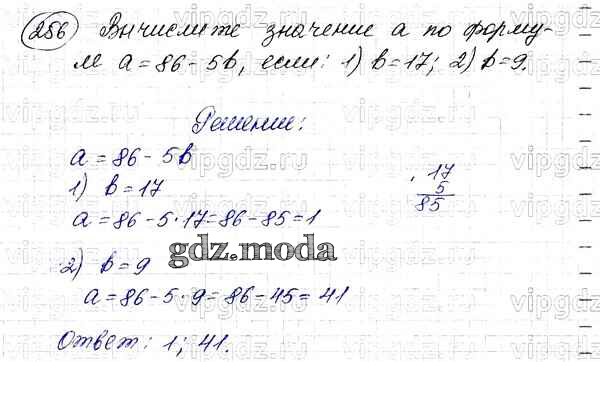 256 Вычислите значение a по форму-
ле a = 86 - 5b, если: 1) b = 17; 2) b = 9.
Решение:
a = 86 - 5b
1) b = 17
17
5
85
a = 86 - 5 · 17 = 86 - 85 = 1
gdz.moda
2) b = 9
a = 86 - 5 · 9 = 86 - 45 = 41
Ответ: 1; 41.
vipgdz.ru